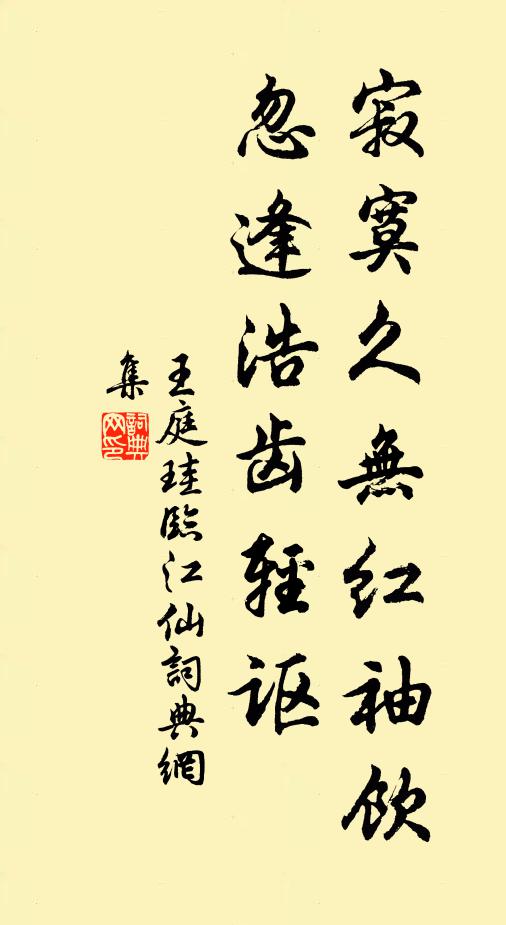 寂寞久無紅袖飲
忽逢浩齿輕讴
王庭珪臨江仙詞典網
集
詞典網印